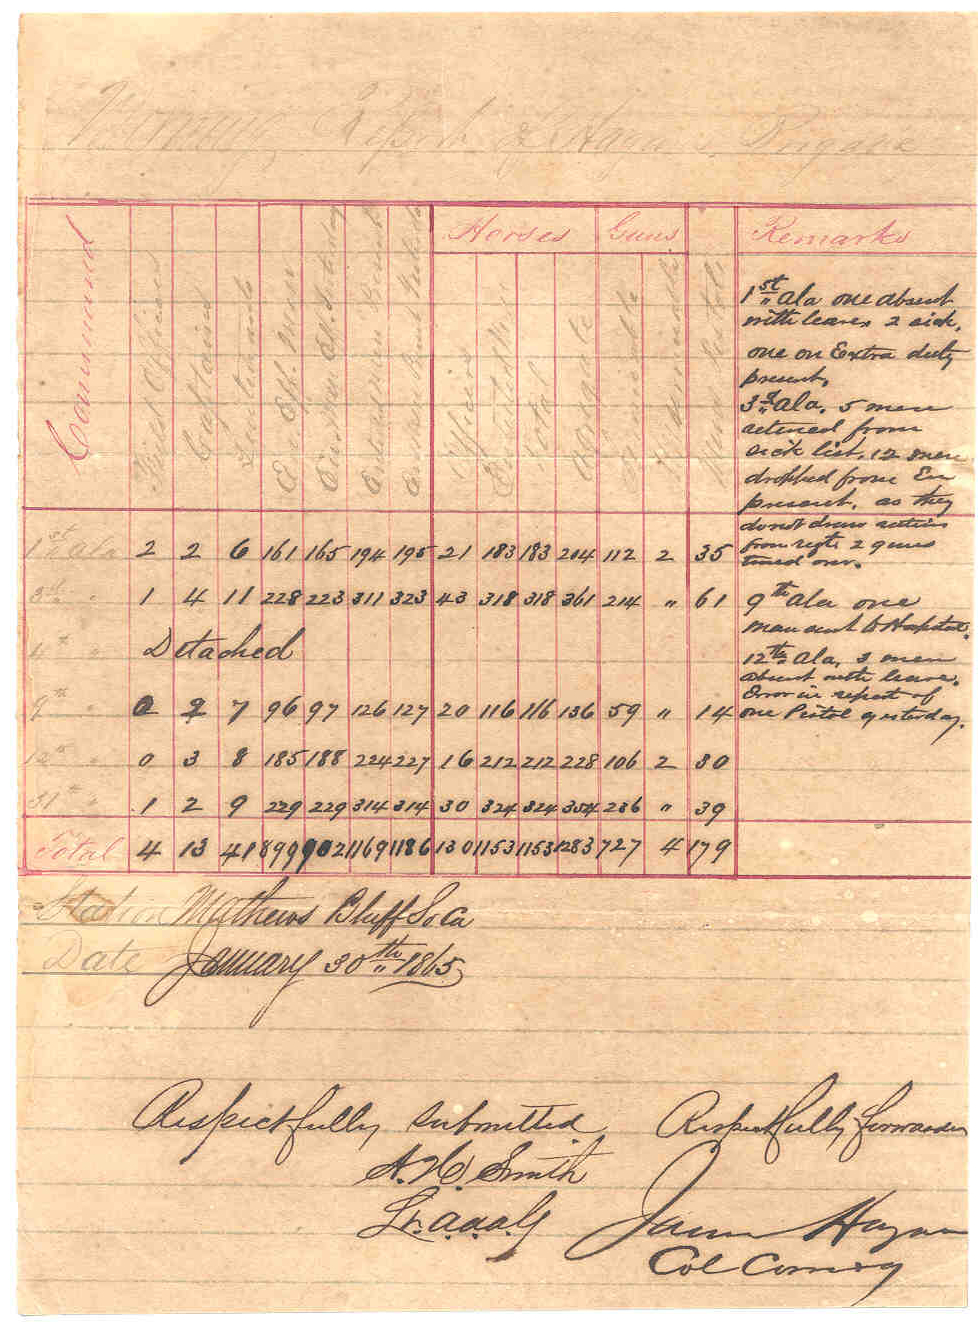 Report of Hagan's Brigade
Command
Field Officers
Captains
Lieutenants
Horses
Guns
Remarks
Officers
Enlisted Men
Total
1st Ala 2 2 6 161 165 194 195 21 183 183 204 112 2 35
3rd " 1 4 11 228 223 311 323 43 318 318 361 214 " 61
4th Detached
9th " 0 2 7 96 97 126 127 20 116 116 136 59 " 14
12th " 0 3 8 185 188 224 227 16 212 212 228 106 2 30
51st " 1 2 9 229 229 314 314 30 324 324 354 236 " 39
Total 4 13 41 899 902 1169 1186 130 1153 1153 1283 727 4 179
1st Ala one absent
with leave, 2 sick,
one on Extra duty
present,
3d Ala. 5 men
returned from
sick list. 12 men
dropped from Em
present, as they
do not draw rations
from regt. 2 guns
turned over.
9th Ala one
man sent to Hospital.
12th Ala, 3 men
absent with leave.
Error in report of
one Pistol yesterday.
Station Mathews Bluff So Ca
Date January 30th 1865
Respectfully Submitted Respectfully forwarded
A. H. Smith
Lt. a.a.a.G
James Hagan
Col Comdg